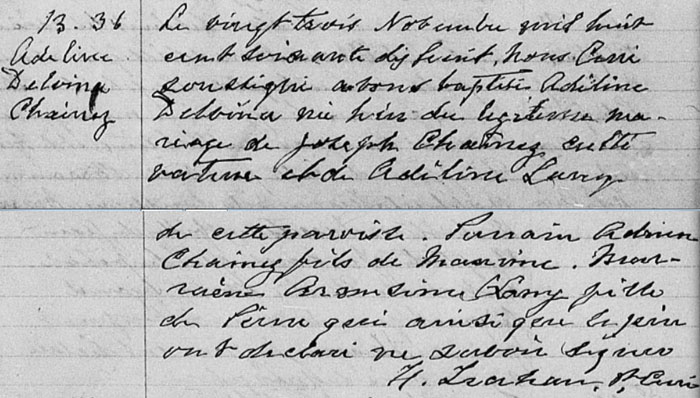 B. 36
Adeline
Delvina
Chainez
Le vingt trois Novembre mil huit
cent soixante dix huit, nous Curé
soussigné avons baptisé Adéline
Delvina née hier du légitime ma-
riage de Joseph Chainez culti
vateur et de Adéline Lany
de cette paroisse. Parrain Adrien
Chainez fils de Maxime. Mar-
raine Armésime Lany fille
de Pierre qui ainsi que le père
ont déclaré ne savoir signer
H. Trahan, Ptre Curé